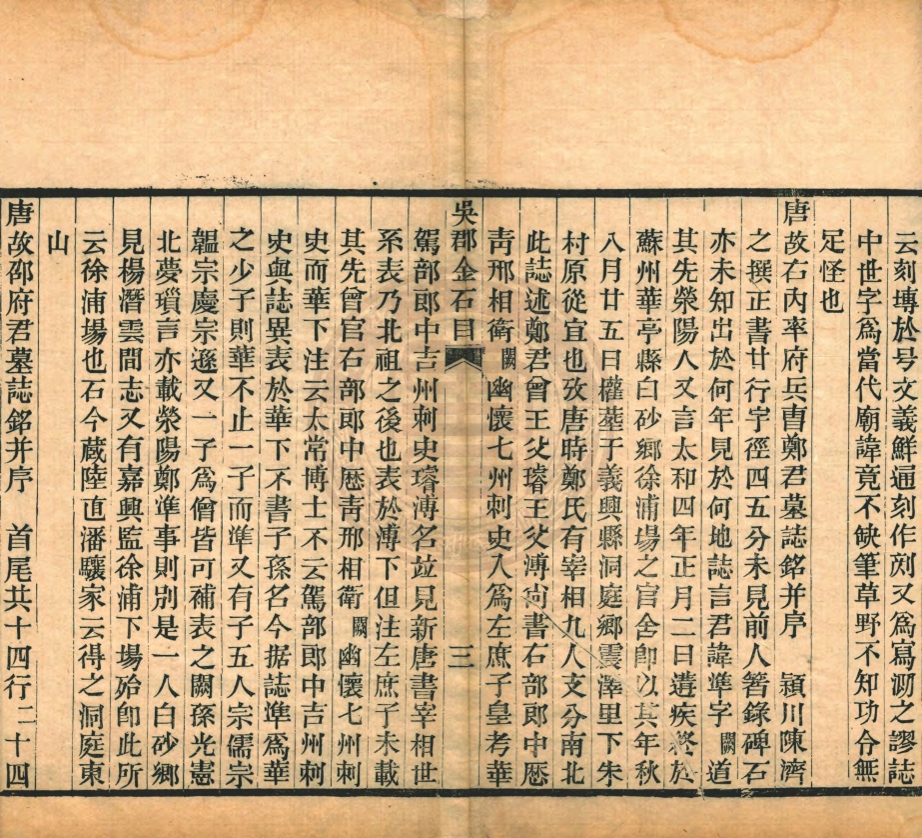 云刻塼於号文義鮮通刻作刻又為寫泐之謬誌
中世字為當代廟諱竟不缺筆草野不知功令無
足怪也
唐故右內率府兵曹鄭君墓誌銘并序 潁川陳濟
之撰正書廿行字徑四五分未見前人箸錄碑石
亦未知出於何年見於何地誌言君諱準字闕道
其先滎陽人又言太和四年正月二日遘疾終於
蘇州華亭縣白砂鄉徐浦場之官舍卽以其年秋
八月廿五日權葬于義興縣洞庭鄉震澤里下朱
村原從宜也攷唐時鄭氏有宰相九人支分南北
此誌述鄭君曾王父璿王父溥尙書右部郎中歷
靑邢相衛闕幽懷七州刺史入為左庶子皇考華
吳郡金石目 三
駕部郎中吉州刺史璿溥名竝見新唐書宰相世
系表乃北祖之後也表於溥下但注左庶子未載
其先曾官右部郎中歷靑邢相衛闕幽懷七州刺
史而華下注云太常博士不云駕部郎中吉州刺
史與誌異表於華下不書子孫名今据誌準為華
之少子則華不止一子而準又有子五人宗儒宗
韞宗慶宗遜又一子為僧皆可補表之闕孫光憲
北夢瑣言亦載滎陽鄭準事則別是一人白砂鄉
見楊潛雲間志又有嘉興監徐浦下場殆卽此所
云徐浦場也石今蔵陸直潘驤家云得之洞庭東
山
唐故邵府君墓誌銘并序 首尾共十四行二十四